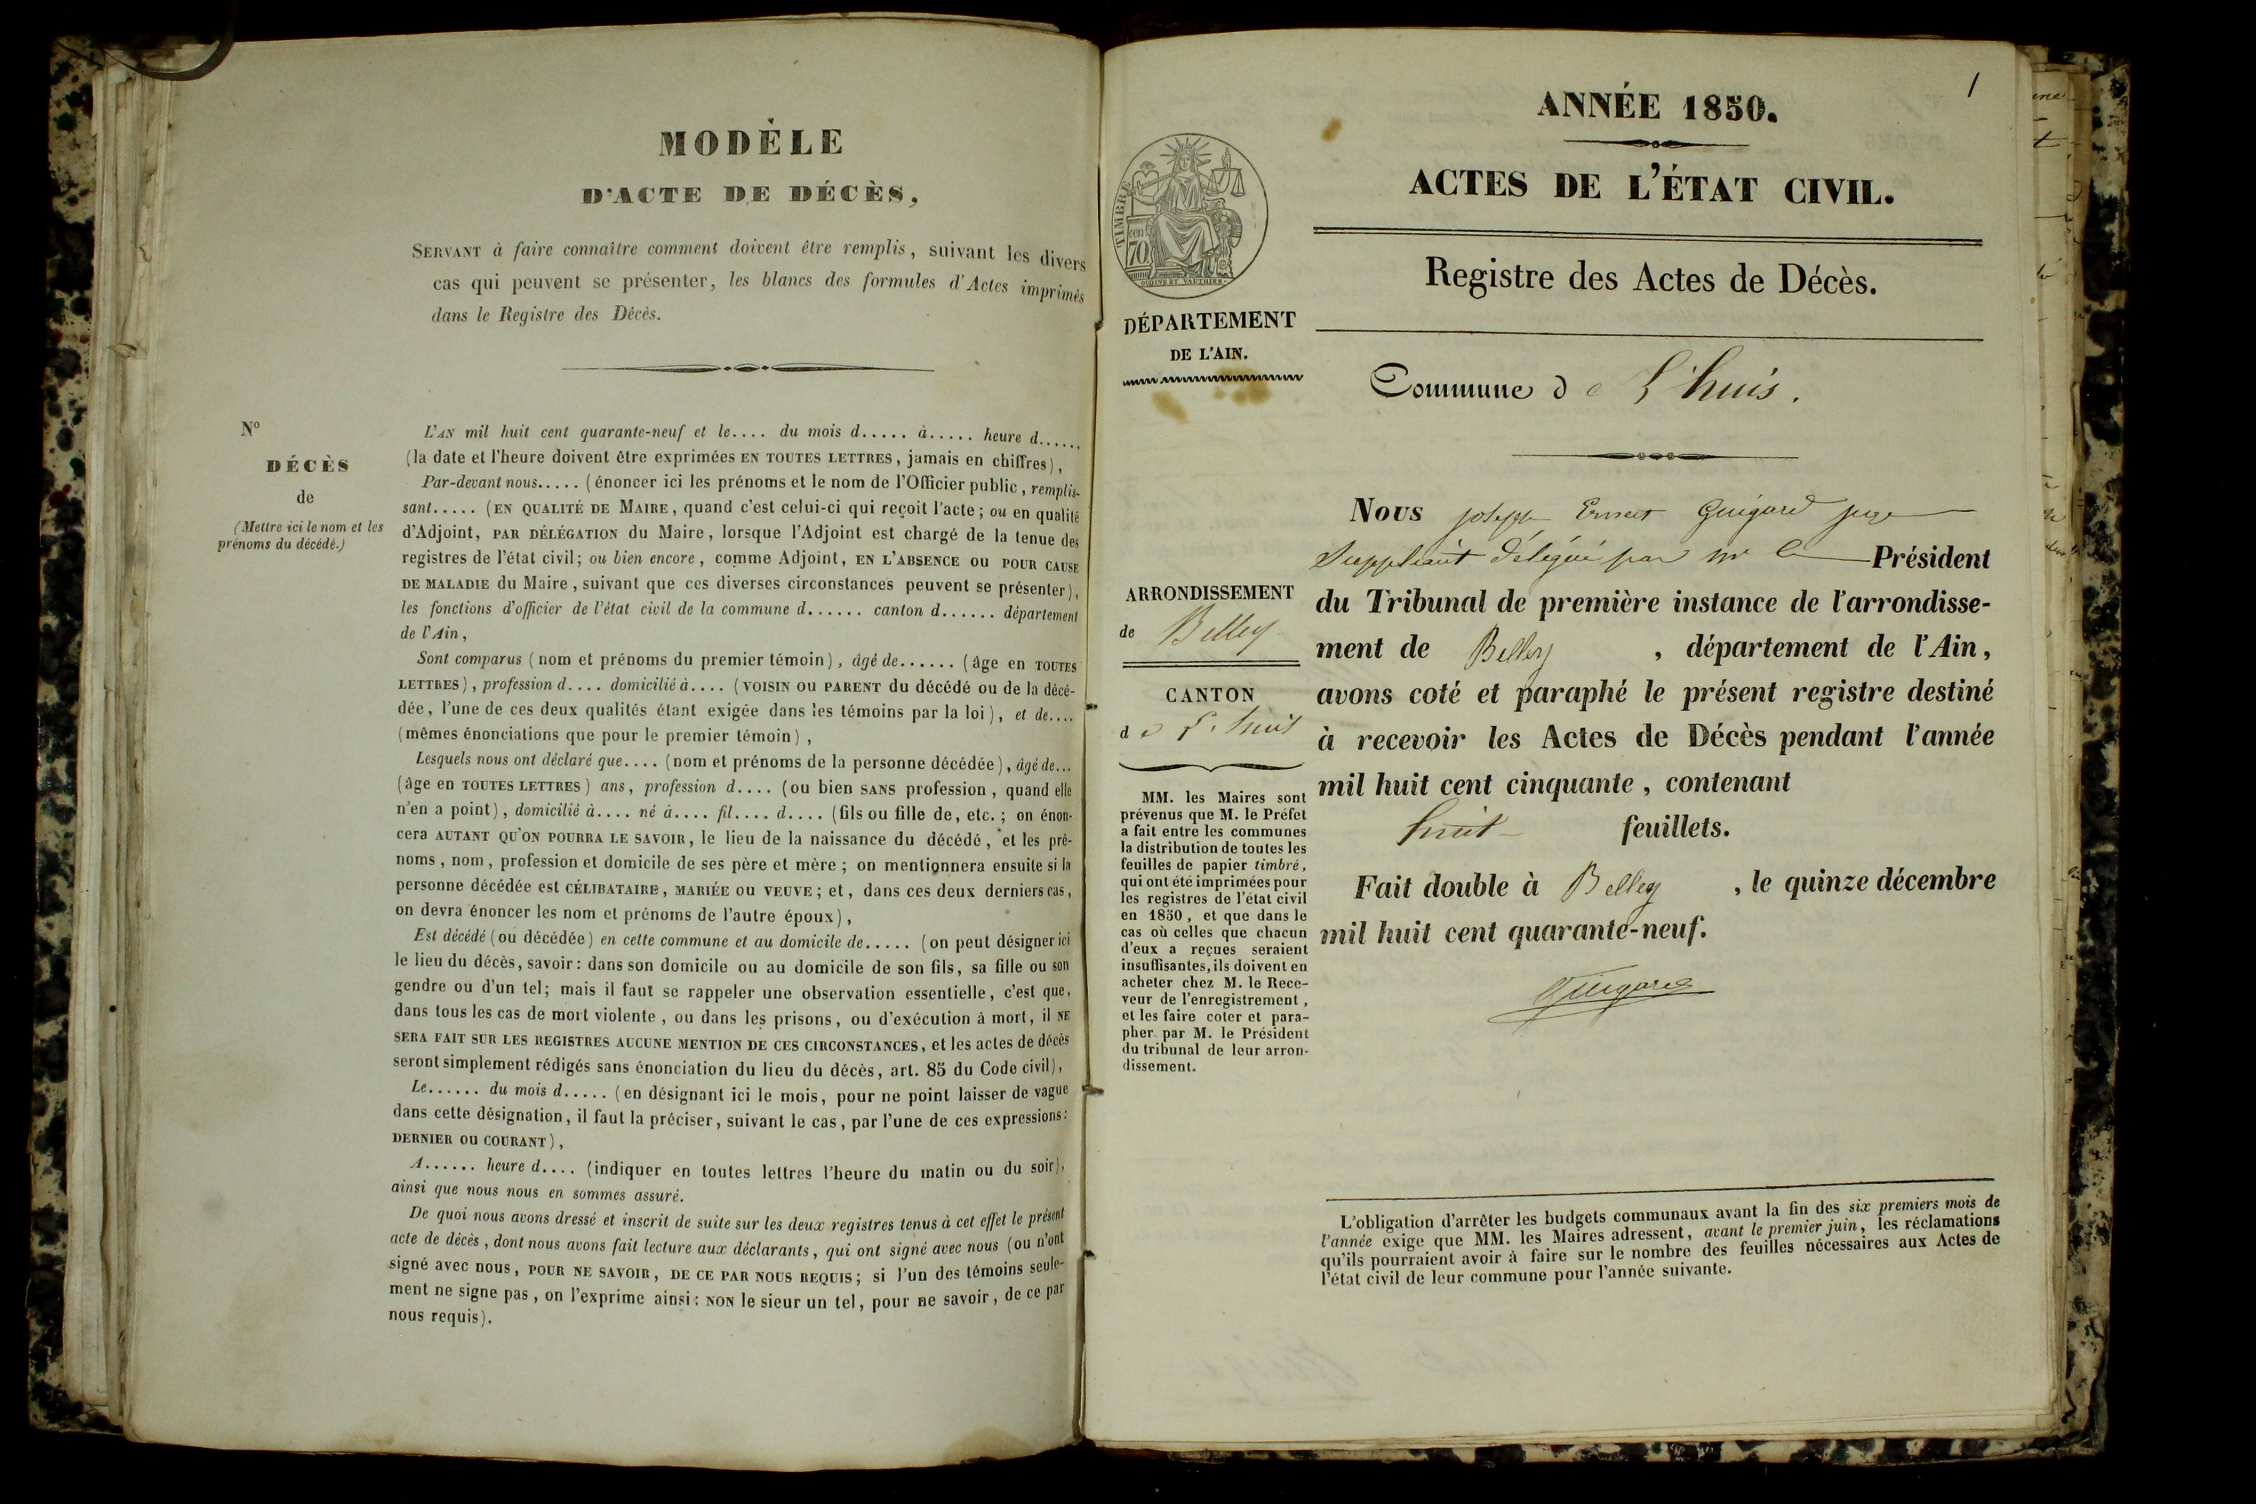 MODÈLE
D'ACTE DE DÉCÈS,
SERVANT à faire connaître comment doivent être remplis, suivant les divers
cas qui peuvent se présenter, les blancs des formules d'Actes imprimés
dans le Registre des Décès.
N°
DÉCÈS
de
(Mettre ici le nom et les
prénoms du décédé.)
L'AN mil huit cent quarante-neuf et le.... du mois d..... à..... heure d......
(la date et l'heure doivent être exprimées EN TOUTES LETTRES, jamais en chiffres),
Par-devant nous..... (énoncer ici les prénoms et le nom de l'Officier public, remplis-
sant..... (EN QUALITÉ DE MAIRE, quand c'est celui-ci qui reçoit l'acte; ou en qualité
d'Adjoint, PAR DÉLÉGATION du Maire, lorsque l'Adjoint est chargé de la tenue des
registres de l'état civil; ou bien encore, comme Adjoint, EN L'ABSENCE OU POUR CAUSE
DE MALADIE du Maire, suivant que ces diverses circonstances peuvent se présenter),
les fonctions d'officier de l'état civil de la commune d...... canton d...... département
de l'Ain,
Sont comparus (nom et prénoms du premier témoin), âgé de...... (âge en TOUTES
LETTRES), profession d.... domicilié à.... (VOISIN OU PARENT du décédé ou de la décé-
dée, l'une de ces deux qualités étant exigée dans les témoins par la loi), et de....
(mêmes énonciations que pour le premier témoin),
Lesquels nous ont déclaré que.... (nom et prénoms de la personne décédée), âgé de...
(âge en TOUTES LETTRES) ans, profession d.... (ou bien SANS profession, quand elle
n'en a point), domicilié à.... né à.... fil.... d.... (fils ou fille de, etc.; on énon-
cera AUTANT QU'ON POURRA LE SAVOIR, le lieu de la naissance du décédé, et les pré-
noms, nom, profession et domicile de ses père et mère; on mentionnera ensuite si la
personne décédée est CÉLIBATAIRE, MARIÉE OU VEUVE; et, dans ces deux derniers cas,
on devra énoncer les nom et prénoms de l'autre époux),
Est décédé (ou décédée) en cette commune et au domicile de..... (on peut désigner ici
le lieu du décès, savoir: dans son domicile ou au domicile de son fils, sa fille ou son
gendre ou d'un tel; mais il faut se rappeler une observation essentielle, c'est que,
dans tous les cas de mort violente, ou dans les prisons, ou d'exécution à mort, il NE
SERA FAIT SUR LES REGISTRES AUCUNE MENTION DE CES CIRCONSTANCES, et les actes de décès
seront simplement rédigés sans énonciation du lieu du décès, art. 85 du Code civil),
Le...... du mois d..... (en désignant ici le mois, pour ne point laisser de vague
dans cette désignation, il faut la préciser, suivant le cas, par l'une de ces expressions:
DERNIER OU COURANT),
A...... heure d.... (indiquer en toutes lettres l'heure du matin ou du soir),
ainsi que nous nous en sommes assuré.
De quoi nous avons dressé et inscrit de suite sur les deux registres tenus à cet effet le présent
acte de décès, dont nous avons fait lecture aux déclarants, qui ont signé avec nous (ou n'ont
signé avec nous, POUR NE SAVOIR, DE CE PAR NOUS REQUIS; si l'un des témoins seule-
ment ne signe pas, on l'exprime ainsi: NON le sieur un tel, pour ne savoir, de ce par
nous requis).
1
ANNÉE 1850.
ACTES DE L'ÉTAT CIVIL.
Registre des Actes de Décès.
TIMBRE
70
DÉPARTEMENT
DE L'AIN.
Commune de L'huis.
ARRONDISSEMENT
de Belley
CANTON
de L'huis
MM. les Maires sont
prévenus que M. le Préfet
a fait entre les communes
la distribution de toutes les
feuilles de papier timbré,
qui ont été imprimées pour
les registres de l'état civil
en 1850, et que dans le
cas où celles que chacun
d'eux a reçues seraient
insuffisantes, ils doivent en
acheter chez M. le Rece-
veur de l'enregistrement,
et les faire coter et para-
pher par M. le Président
du tribunal de leur arron-
dissement.
Nous joseph Ernest Guigard juge
Suppléant délégué par mr le Président
du Tribunal de première instance de l'arrondisse-
ment de Belley, département de l'Ain,
avons coté et paraphé le présent registre destiné
à recevoir les Actes de Décès pendant l'année
mil huit cent cinquante, contenant
huit feuillets.
Fait double à Belley, le quinze décembre
mil huit cent quarante-neuf.
Guigard
L'obligation d'arrêter les budgets communaux avant la fin des six premiers mois de
l'année exige que MM. les Maires adressent, avant le premier juin, les réclamations
qu'ils pourraient avoir à faire sur le nombre des feuilles nécessaires aux Actes de
l'état civil de leur commune pour l'année suivante.